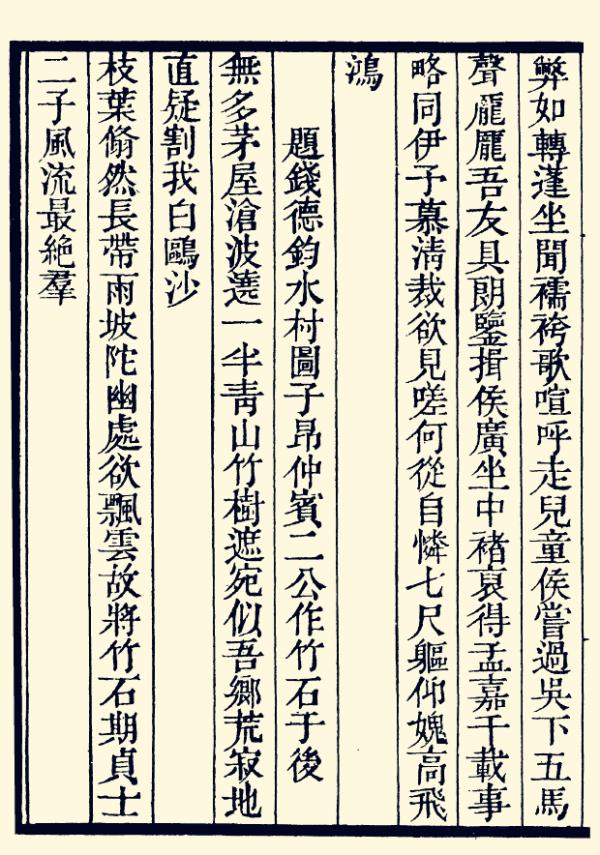 弊如轉蓬坐聞襦袴歌喧呼走兒童侯嘗過吳下五馬
聲龎龎吾友具朗鑒揖侯廣坐中褚裒得孟嘉千載事
略同伊予慕清裁欲見嗟何從自憐七尺軀仰媿高飛
鴻
題錢德鈞水村圖子昻仲賓二公作竹石于後
無多茅屋滄波遶一半靑山竹樹遮宛似吾鄉荒寂地
直疑割我白鷗沙
枝葉翛然長帶雨坡陀幽處欲飄雲故將竹石期貞士
二子風流最絶羣